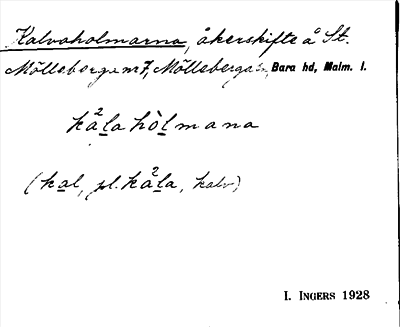 Kalvaholmarna, åkerskifte å St.
Mölleberga nr 7, Mölleberga sn, Bara hd, Malm. l.
kå²la hòlmana
(kal, pl. kå²la, kalv)
I. INGERS 1928